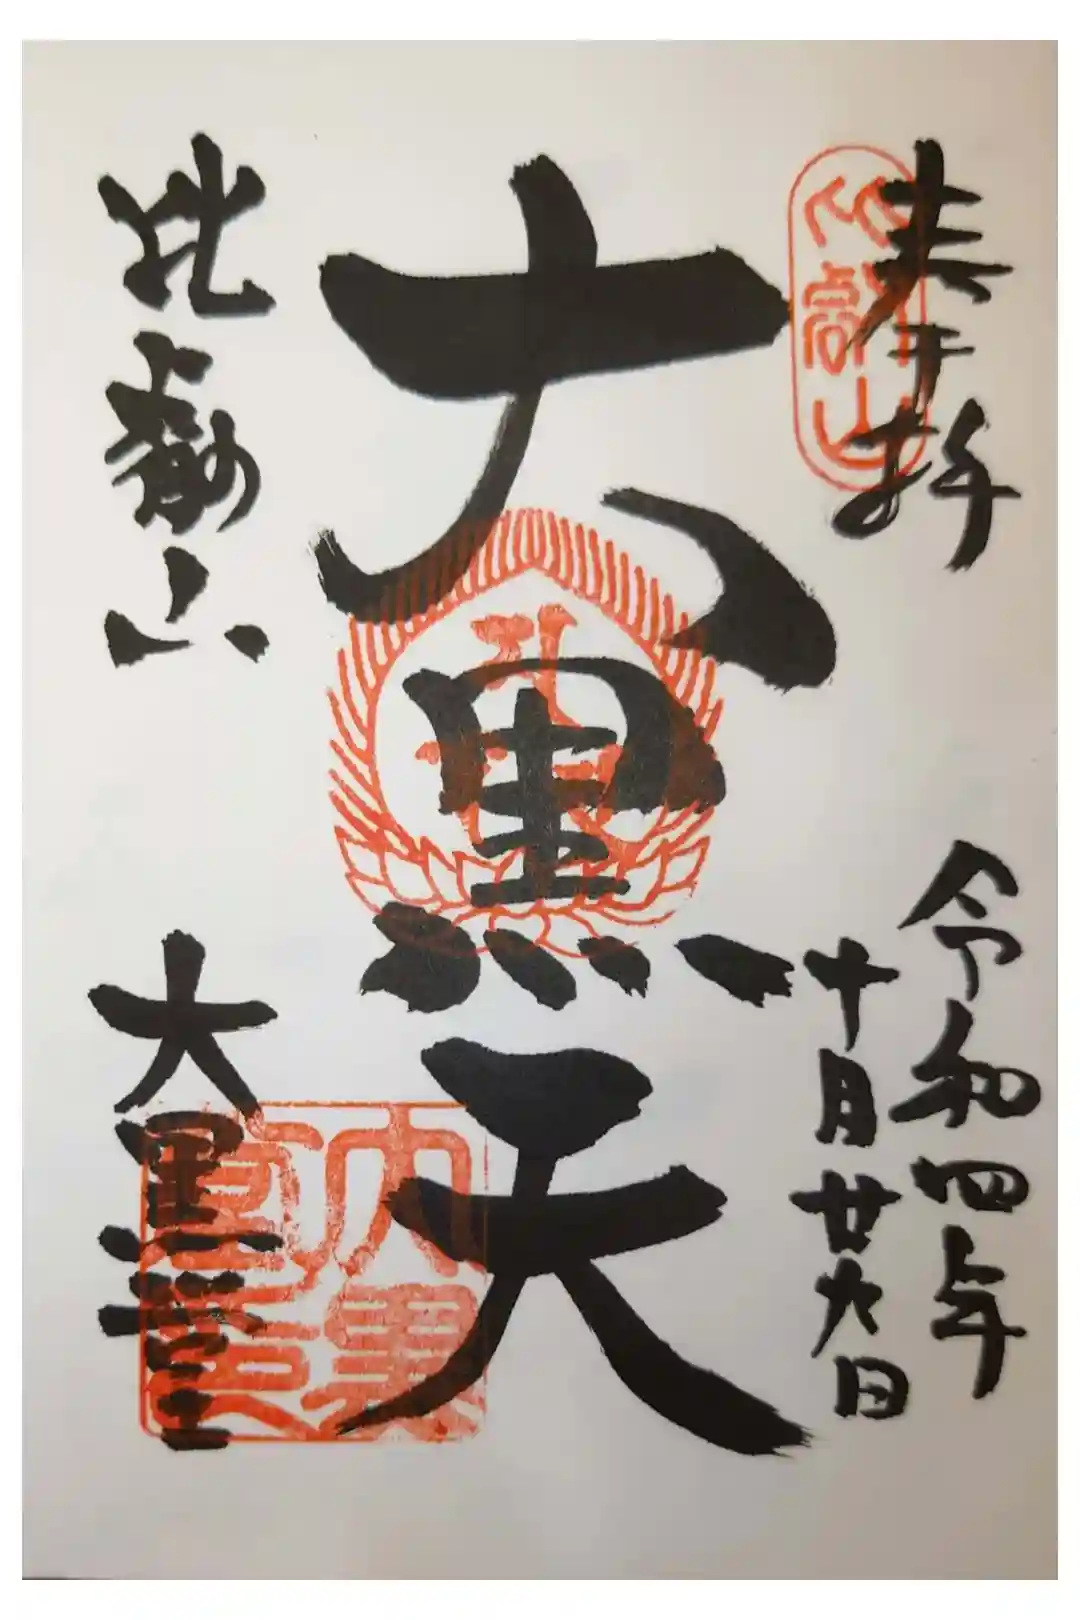 奉拝
令和四年
十月廿九日
大黒天
比叡山
大黒堂
比叡山